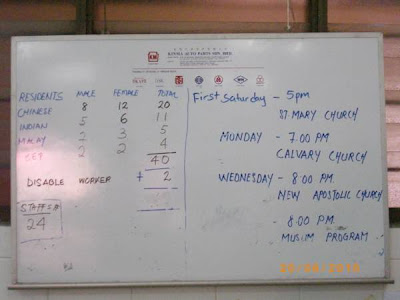 KIMMA AUTO PARTS SDN. BHD.
RESIDENTS MALE FEMALE TOTAL
CHINESE 8 12 20
INDIAN 5 6 11
MALAY 2 3 5
2 2 4
40
DISABLE WORKER + 2
STAFFS
24
First Saturday - 5pm
ST. MARY CHURCH
MONDAY - 7.00 PM
CALVARY CHURCH
WEDNESDAY - 8.00 PM
NEW APOSTOLIC CHURCH
- 8.00 P.M.
MUSLIM PROGRAM